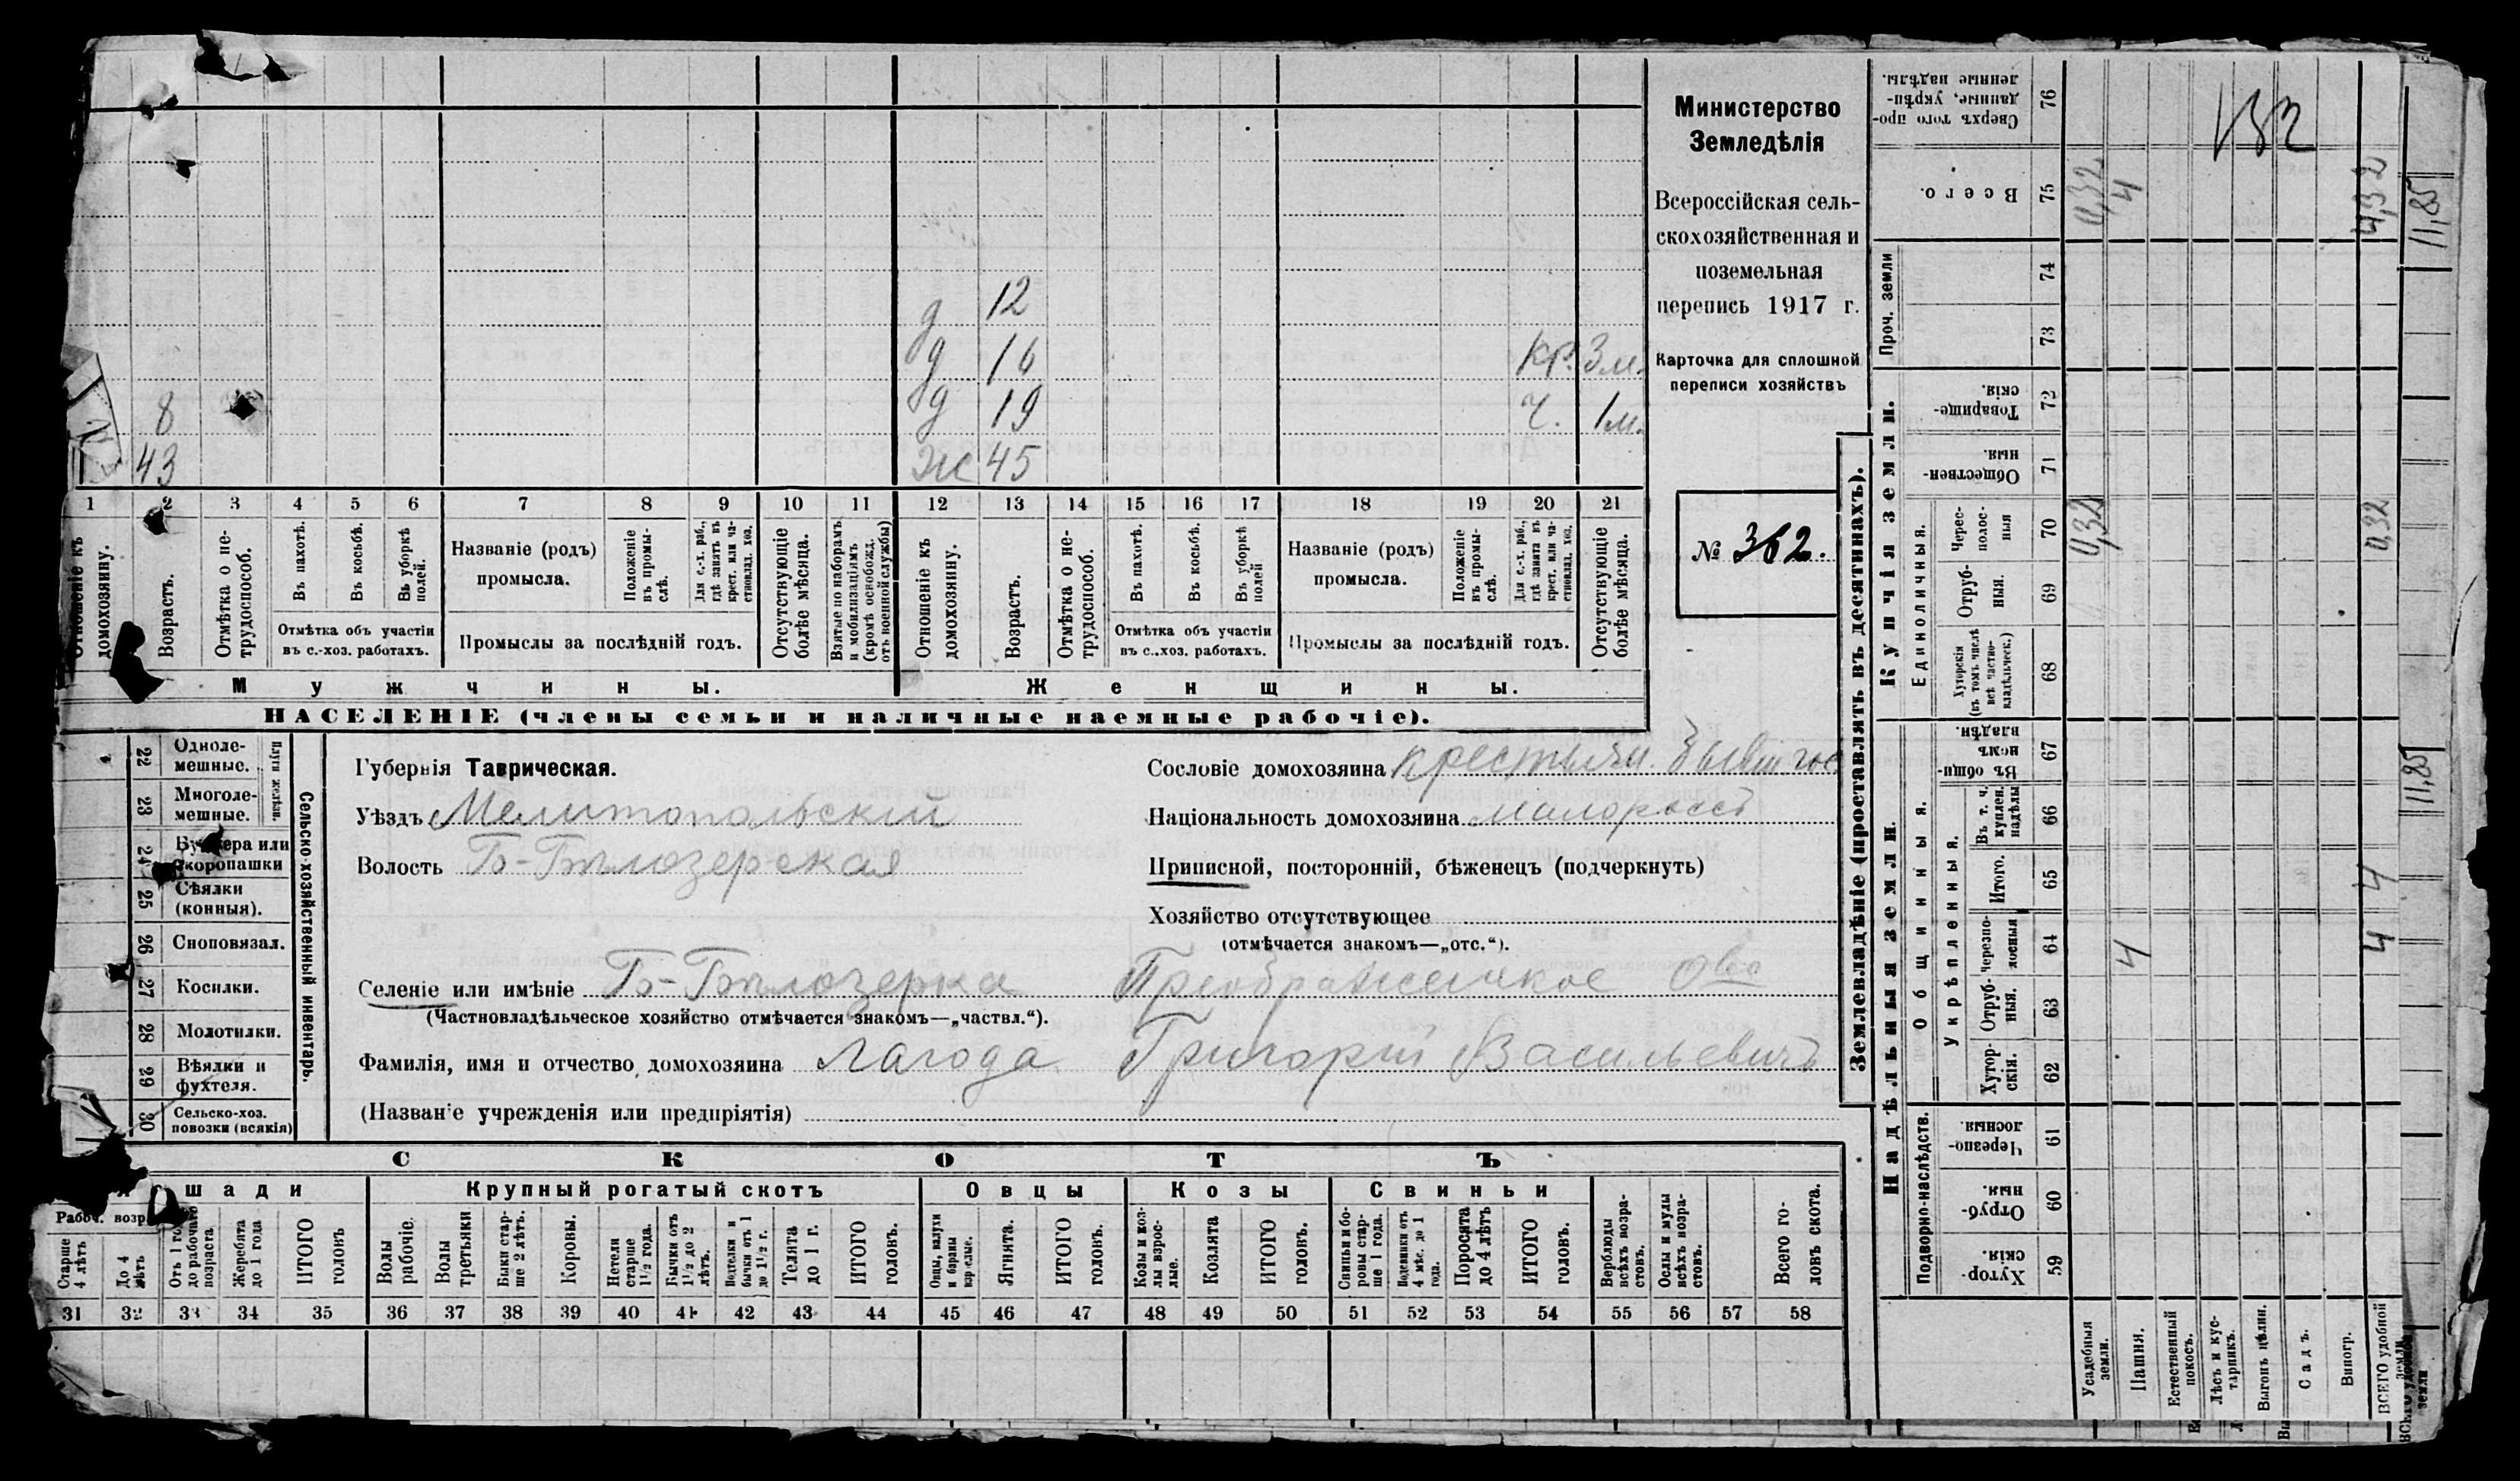 Министерство
Земледѣлія
Всероссійская сель-
скохозяйственная и
поземельная
перепись 1917 г.
Карточка для сплошной
переписи хозяйствъ
№ 362.
12
д
д 16 кр. 3 м.
8 д 19 ч. 1 м.
43 ж 45
1 2 3 4 5 6 7 8 9 10 11 12 13 14 15 16 17 18 19 20 21
Отношеніе къ домохозяину.
Возрастъ.
Отмѣтка о не-трудоспособ.
Въ пахотѣ.
Въ косьбѣ.
Въ уборкѣ полей.
Отмѣтка объ участіи
въ с.-хоз. работахъ.
Названіе (родъ)
промысла.
Положеніе въ промы-слѣ.
Для с.-х. раб., гдѣ занятъ въ крест. или ча-стновлад. хоз.
Промыслы за послѣдній годъ.
Отсутствующіе болѣе мѣсяца.
Взятые по наборамъ и мобилизаціямъ (кромѣ освобожд. отъ военной службы)
Отношеніе къ домохозяину.
Возрастъ.
Отмѣтка о не-трудоспособ.
Въ пахотѣ.
Въ косьбѣ.
Въ уборкѣ полей
Отмѣтка объ участіи
въ с.-хоз. работахъ.
Названіе (родъ)
промысла.
Положеніе въ промы-слѣ.
Для с.-х. раб., гдѣ занята въ крест. или ча-стновлад. хоз.
Промыслы за послѣдній годъ.
Отсутствующіе болѣе мѣсяца.
Мужчины. Женщины.
НАСЕЛЕНІЕ (члены семьи и наличные наемные рабочіе).
Сельско-хозяйственный инвентарь.
Плуги желѣзн.
22 Одноле-мешные.
23 Многоле-мешные.
24 Буккера или скоропашки
25 Сѣялки (конныя).
26 Сноповязал.
27 Косилки.
28 Молотилки.
29 Вѣялки и фухтеля.
30 Сельско-хоз. повозки (всякія)
Губернія Таврическая.
Уѣздъ Мелитопольскій
Волость Б-Бѣлозерская
Сословіе домохозяина крестьян. бывш гос
Національность домохозяина малороссъ
Приписной, посторонній, бѣженецъ (подчеркнуть)
Хозяйство отсутствующее
(отмѣчается знакомъ—„отс.“).
Селеніе или имѣніе Б-Бѣлозерка Преображенское Ово
(Частновладѣльческое хозяйство отмѣчается знакомъ—„частвл.“).
Фамилія, имя и отчество домохозяина Лагода Григорій Васильевичъ
(Названіе учрежденія или предпріятія)
СКОТЪ
Лошади Крупный рогатый скотъ Овцы Козы Свиньи
Рабоч. возр.
Старше 4 лѣтъ
До 4 лѣтъ
Отъ 1 года до рабочаго возраста
Жеребята до 1 года
ИТОГО головъ
Волы рабочіе.
Волы третьяки
Быки стар-ше 2 лѣтъ.
Коровы.
Нетели старше 1½ года.
Бычки отъ 1½ до 2 лѣтъ.
Подтелки и бычки отъ 1 до 1½ г.
Телята до 1 г.
ИТОГО головъ.
Овцы, валухи и бараны взрослые.
Ягнята.
ИТОГО головъ.
Козы и коз-лы взрос-лые.
Козлята
ИТОГО головъ.
Свиньи и бо-ровы стар-ше 1 года.
Подсвинки отъ 4 мѣс. до 1 года.
Поросята до 4 лѣтъ
ИТОГО головъ.
Верблюды всѣхъ возра-стовъ.
Ослы и мулы всѣхъ возра-стовъ.
Всего го-ловъ скота.
31 32 33 34 35 36 37 38 39 40 41 42 43 44 45 46 47 48 49 50 51 52 53 54 55 56 57 58
Землевладѣніе (проставлять въ десятинахъ).
Купчія земли.
Надѣльныя земли.
Сверхъ того про-данные, укрѣп-ленные надѣлы. 76
Всего. 75 0,32 4 4,32 11,85
Проч. земли 74 73
Товарище-скія. 72
Обществен-ныя. 71
Единоличныя.
Черес-полос-ныя 70 0,32 0,32
Отруб-ныя. 69
Хуторскія (въ томъ числѣ всѣ частно-владѣльческ.) 68
Общинныя.
Въ общи-номъ владѣн. 67 11,85
Укрѣпленныя.
Въ т. ч. куплен. надѣлы 66
Итого. 65 4
Черезпо-лосныя 64 4 4
Отруб-ныя. 63
Хутор-скія. 62
Подворно-наслѣдств.
Черезпо-лосныя 61
Отруб-ныя. 60
Хутор-скія. 59
Усадебныя земли.
Пашня.
Естественный покосъ.
Лѣсъ и кус-тарникъ.
Выгонъ цѣлин.
Садъ.
Виногр.
ВСЕГО удобной земли